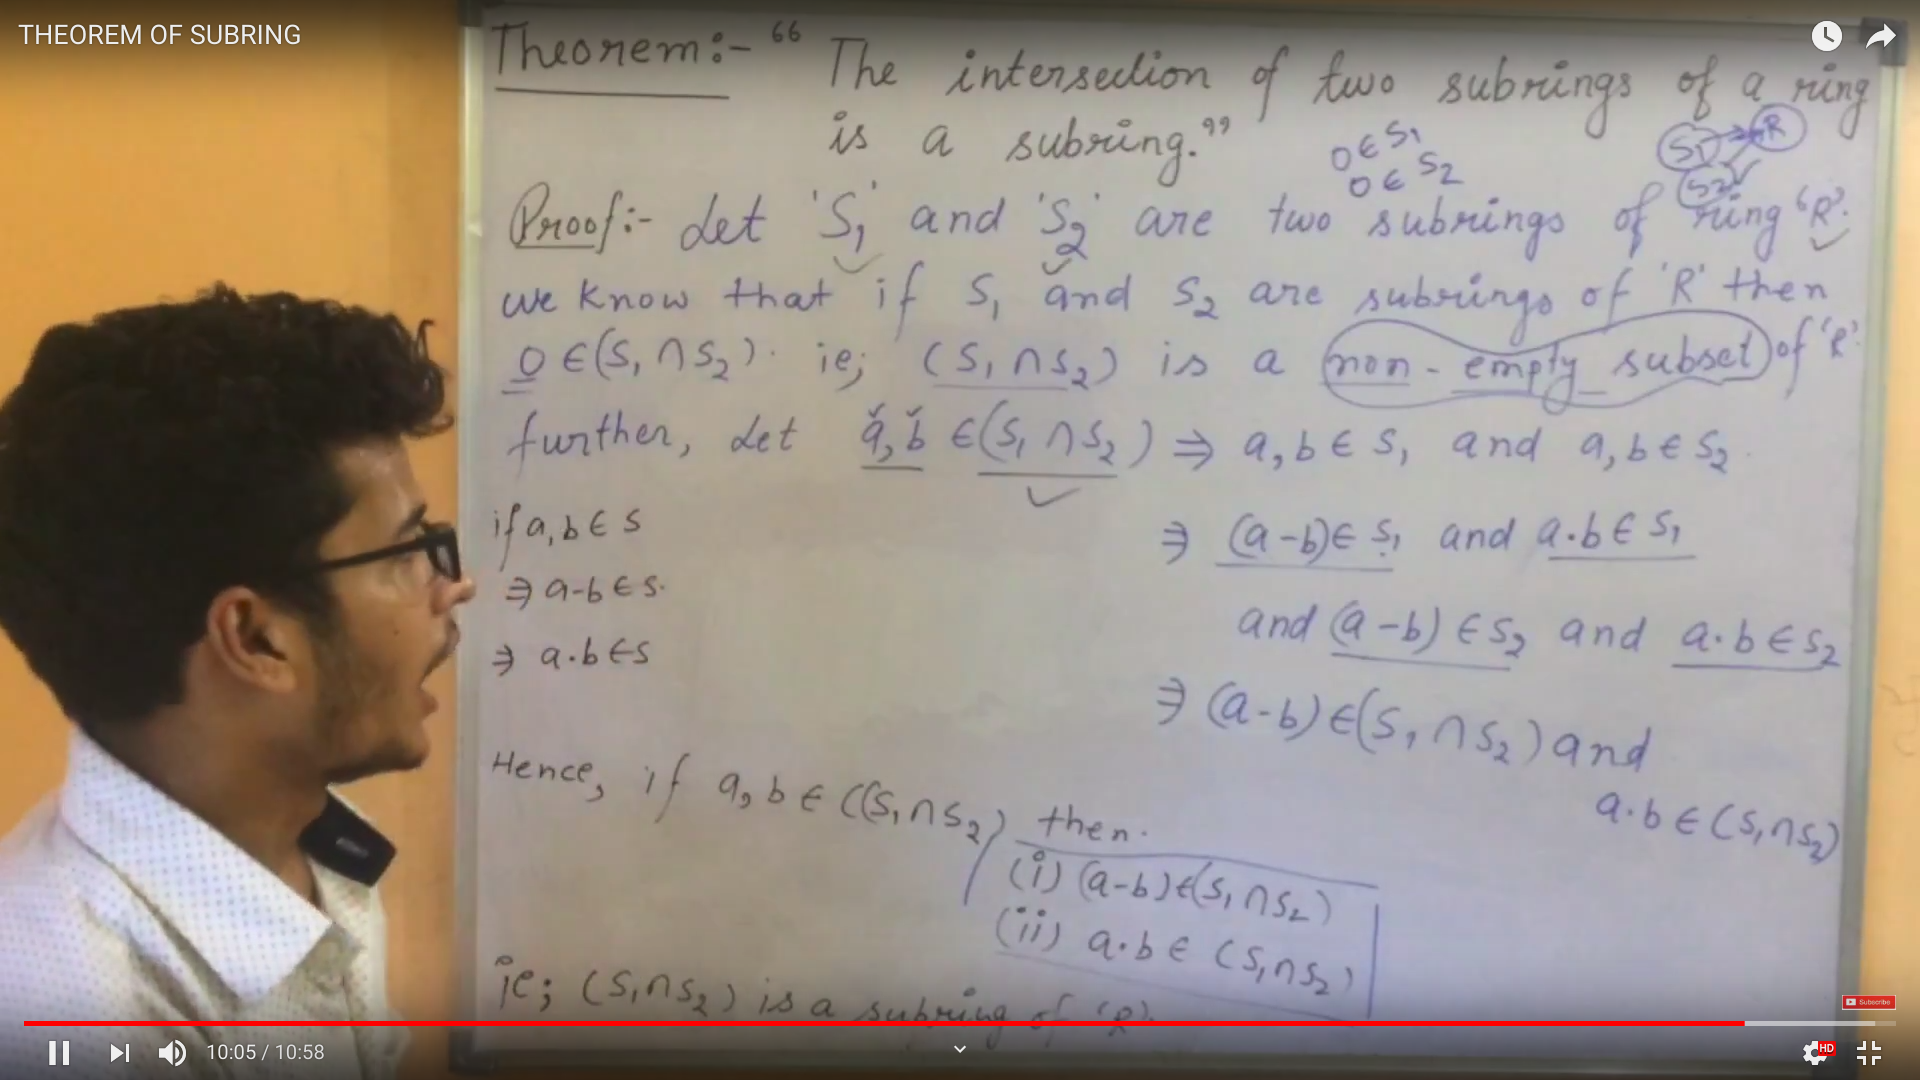 THEOREM OF SUBRING
Theorem:- “ The intersection of two subrings of a ring
is a subring.”
0 ∈ S1
0 ∈ S2
S1 R
S2
Proof:- Let 'S1' and 'S2' are two subrings of ring 'R'.
we know that if S1 and S2 are subrings of 'R' then
0 ∈ (S1 ∩ S2). ie; (S1 ∩ S2) is a non-empty subset of 'R'
further, Let a, b ∈ (S1 ∩ S2) ⇒ a, b ∈ S1 and a, b ∈ S2.
if a, b ∈ S
⇒ a-b ∈ S.
⇒ a.b ∈ S
⇒ (a-b) ∈ S1 and a.b ∈ S1
and (a-b) ∈ S2 and a.b ∈ S2
⇒ (a-b) ∈ (S1 ∩ S2) and
a.b ∈ (S1 ∩ S2)
Hence, if a, b ∈ ((S1 ∩ S2) then.
(i) (a-b) ∈ (S1 ∩ S2)
(ii) a.b ∈ (S1 ∩ S2)
ie; (S1 ∩ S2) is a subring of 'R'.
Subscribe
10:05 / 10:58
HD